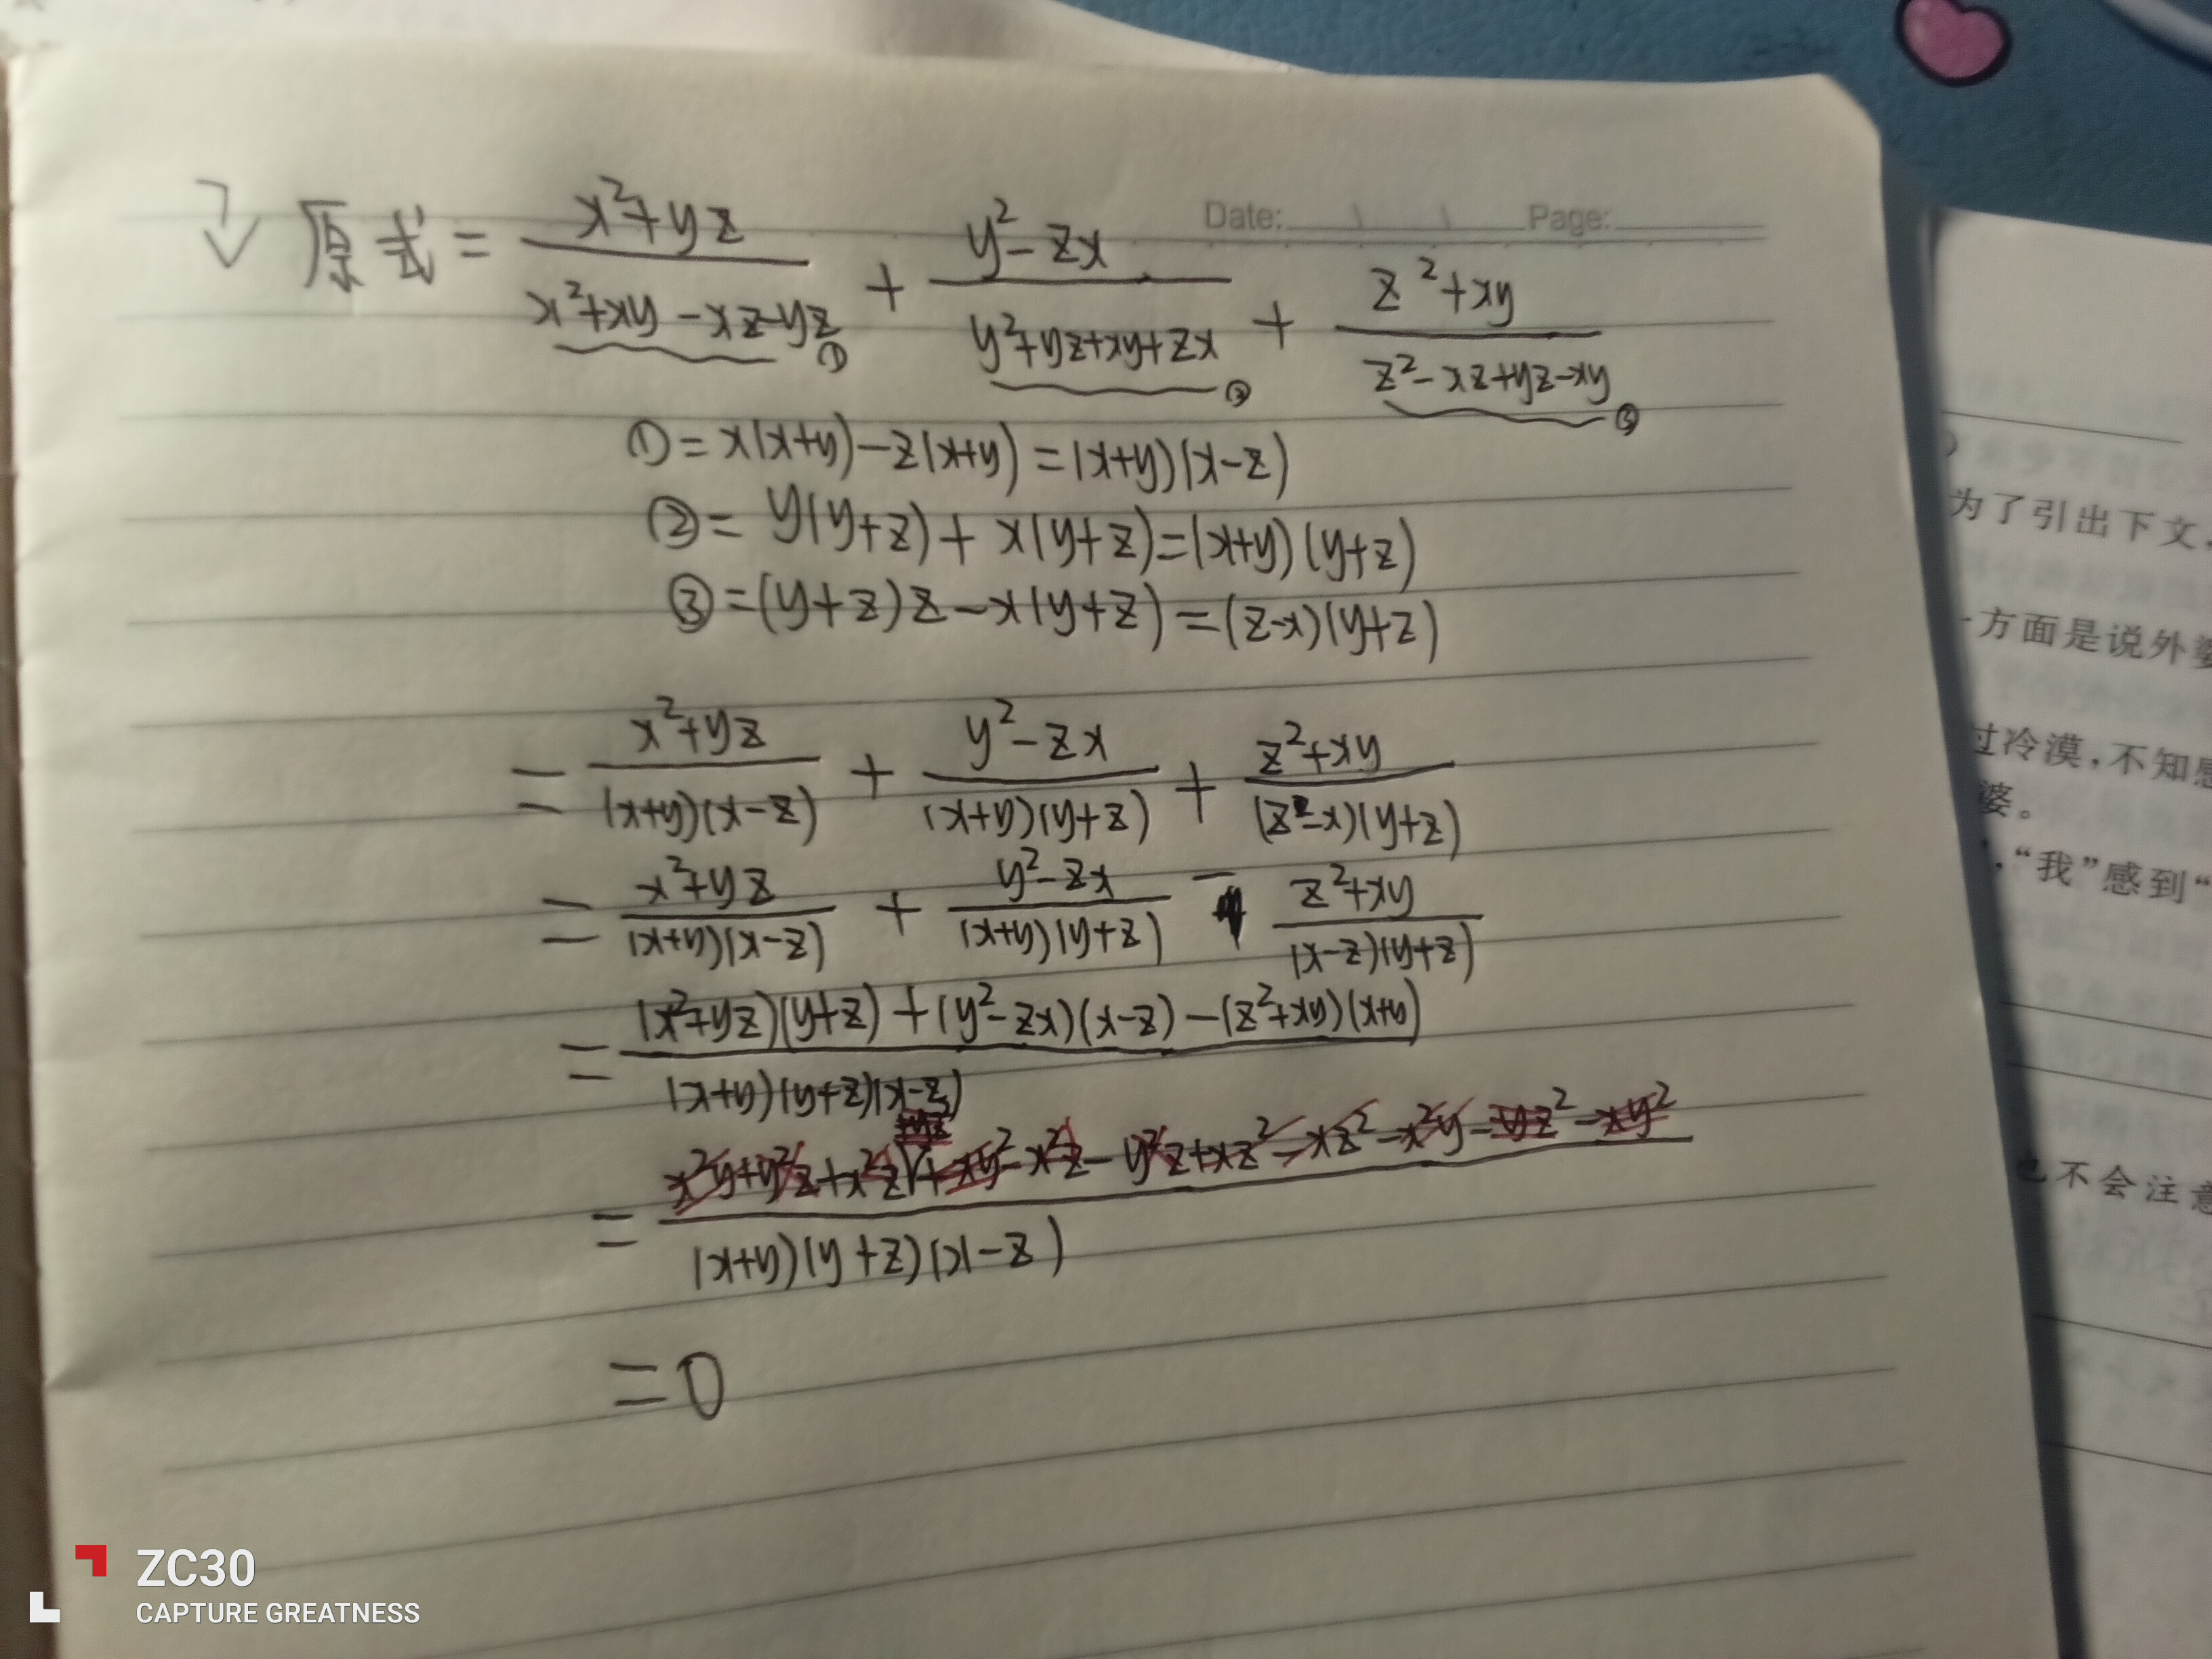 Date: Page:
原式 = (x²+yz)/(x²+xy-xz-yz)① + (y²-zx)/(y²+yz+xy+zx)② + (z²+xy)/(z²-xz+yz-xy)③
① = x(x+y)-z(x+y) = (x+y)(x-z)
② = y(y+z)+x(y+z)=(x+y)(y+z)
③ =(y+z)z-x(y+z) =(z-x)(y+z)
= (x²+yz)/((x+y)(x-z)) + (y²-zx)/((x+y)(y+z)) + (z²+xy)/((z-x)(y+z))
= (x²+yz)/((x+y)(x-z)) + (y²-zx)/((x+y)(y+z)) - (z²+xy)/((x-z)(y+z))
= ((x²+yz)(y+z)+(y²-zx)(x-z)-(z²+xy)(x+y))/((x+y)(y+z)(x-z))
= (x²y+y²z+x²z+yz²+xy²-x²z-y²z+xz²-xz²-x²y-yz²-xy²)/((x+y)(y+z)(x-z))
=0
为了引出下文,
方面是说外婆
过冷漠,不知感
婆。
,“我”感到“
也不会注意
ZC30
CAPTURE GREATNESS